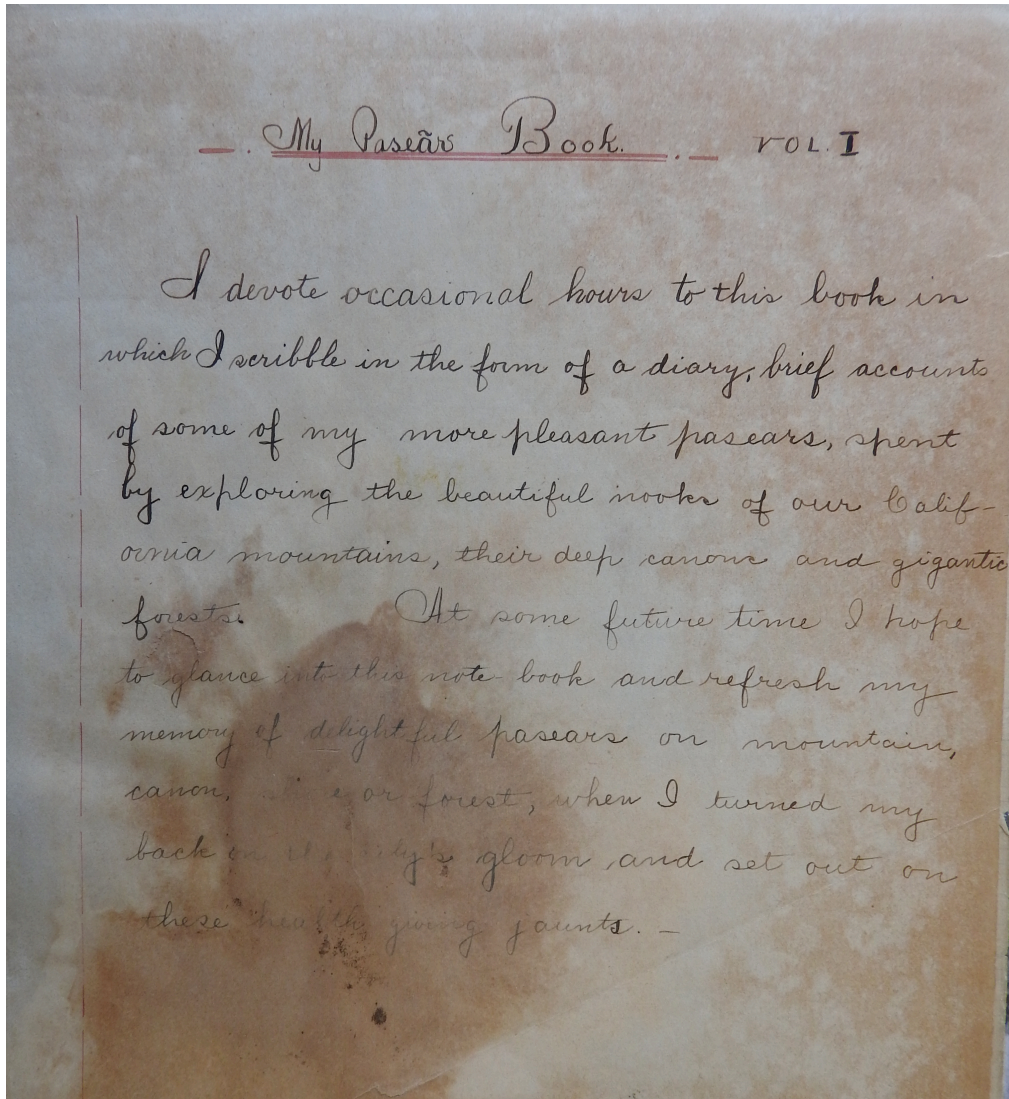 My Paseãr Book. VOL. I
I devote occasional hours to this book in
which I scribble in the form of a diary, brief accounts
of some of my more pleasant pasears, spent
by exploring the beautiful nooks of our Calif-
ornia mountains, their deep canons and gigantic
forests. At some future time I hope
to glance into this note-book and refresh my
memory of delightful pasears on mountain,
canon, or forest, when I turned my
back on the city's gloom and set out on
these health giving jaunts. —